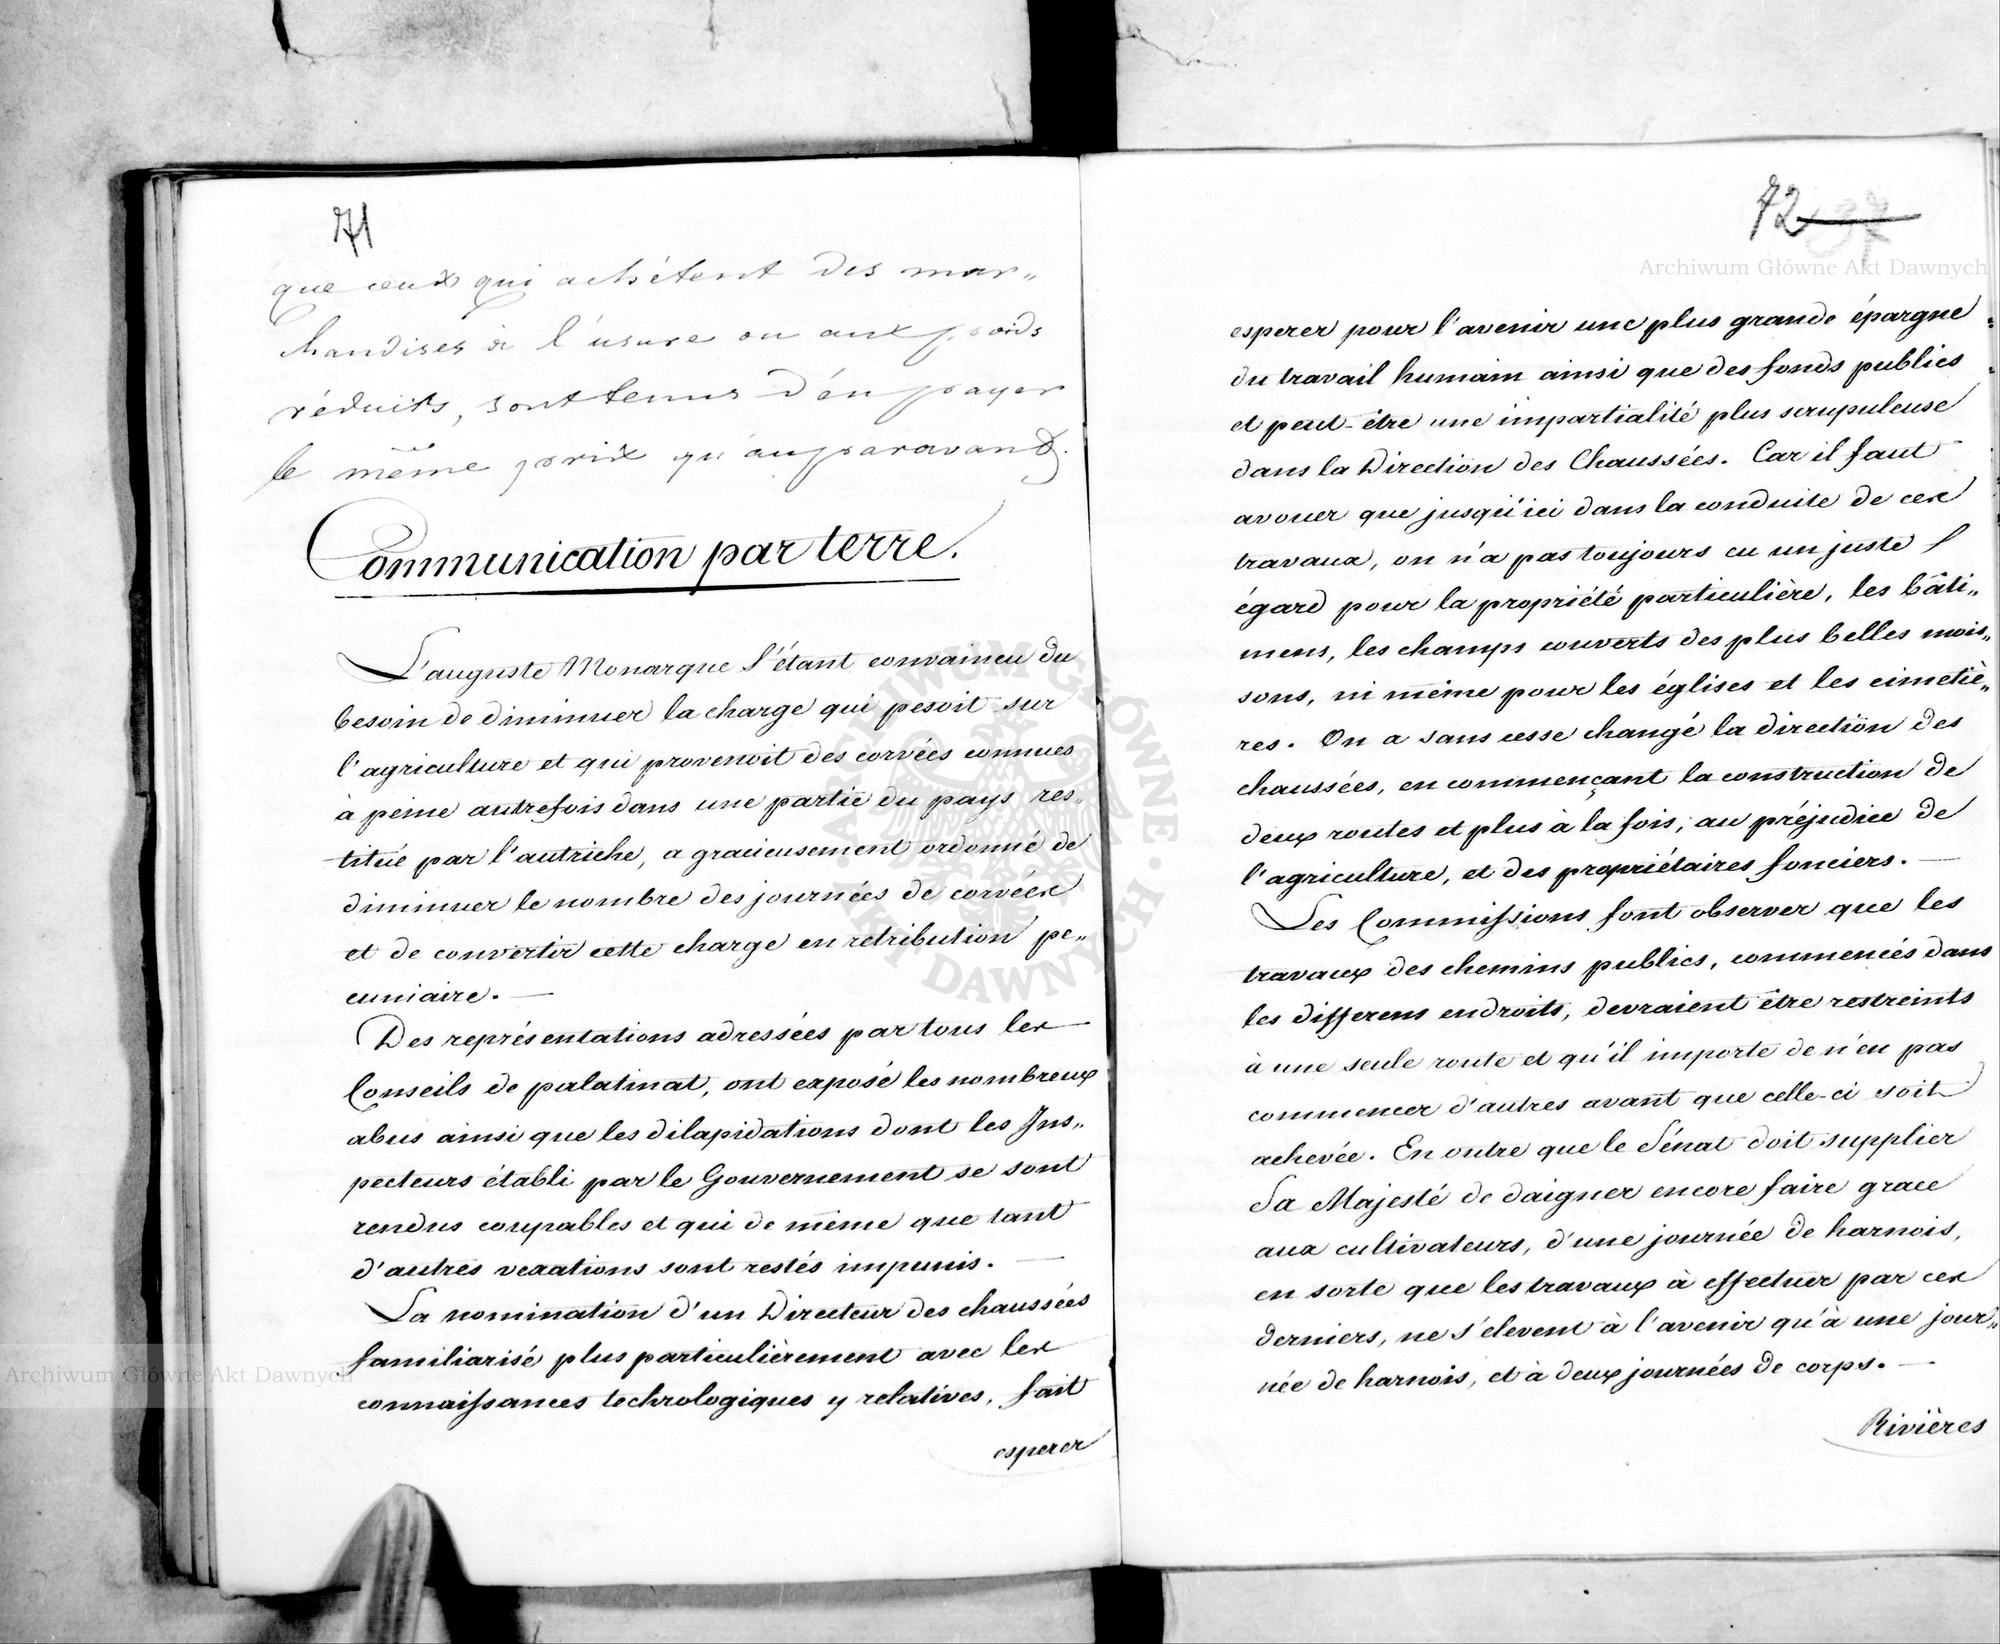 71
que ceux qui achétent des mar„
chandises à l'usure ou aux poids
réduits, sont tenus d'en payer
le même prix qu'auparavant.
Communication par terre.
L'auguste Monarque s'étant convaincu du
besoin de diminuer la charge qui pesoit sur
l'agriculture et qui provenoit des corvées connues
à peine autrefois dans une partie du pays res„
titué par l'autriche, a gracieusement ordonné de
diminuer le nombre des journées de corvées
et de convertir cette charge en retribution pe„
cuniaire. —
Des représentations adressées par tous les
Conseils de palatinat, ont exposé les nombreux
abus ainsi que les dilapidations dont les Ins„
pecteurs établi par le Gouvernement se sont
rendus coupables et qui de même que tant
d'autres vexations sont restés impunis. —
La nomination d'un Directeur des chaussées
familiarisé plus particulièrement avec les
connaissances technologiques y relatives, fait
esperer
72
esperer pour l'avenir une plus grande épargne
du travail humain ainsi que des fonds publics
et peut-être une impartialité plus scrupuleuse
dans la Direction des Chaussées. Car il faut
avouer que jusqu'ici dans la conduite de ces
travaux, on n'a pas toujours eu un juste
égard pour la propriété particulière, les bâti„
mens, les champs couverts des plus belles mois„
sons, ni même pour les églises et les cimetiè„
res. On a sans cesse changé la direction des
chaussées, en commençant la construction de
deux routes et plus à la fois, au préjudice de
l'agriculture, et des propriétaires fonciers. —
Les Commissions font observer que les
travaux des chemins publics, commencés dans
les differens endroits, devraient être restreints
à une seule route et qu'il importe de n'en pas
commencer d'autres avant que celle-ci soit
achevée. En outre que le Sénat doit supplier
Sa Majesté de daigner encore faire grace
aux cultivateurs, d'une journée de harnois,
en sorte que les travaux à effectuer par ces
derniers, ne s'élevent à l'avenir qu'à une jour„
née de harnois, et à deux journées de corps. —
Rivières
Archiwum Główne Akt Dawnych
Archiwum Główne Akt Dawnych
ARCHIWUM GŁÓWNE AKT DAWNYCH